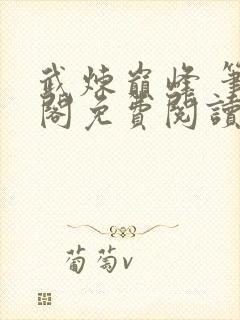 武煉巔峰 筆
閣免費閱讀
葡萄v